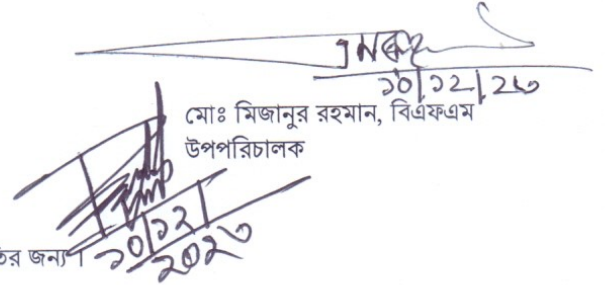 ১০|১২|২৩
মোঃ মিজানুর রহমান, বিএফএম
উপপরিচালক
১০|১২|
২০২৩
জন্য।